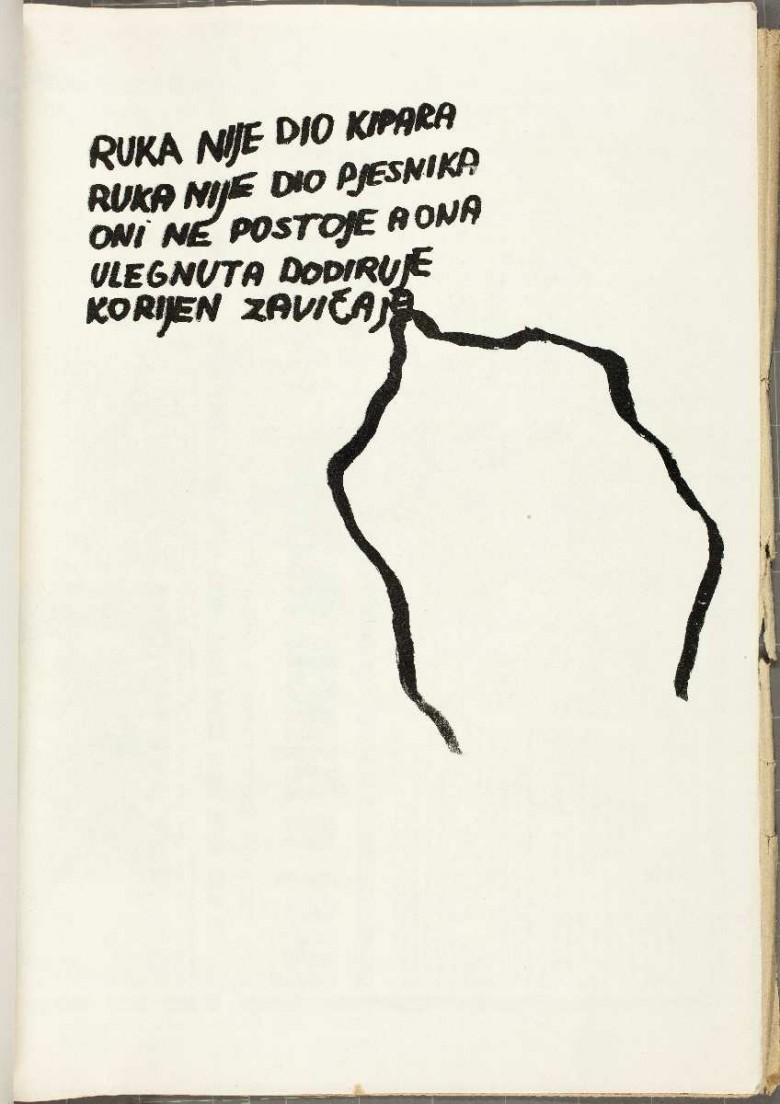 RUKA NIJE DIO KIPARA
RUKA NIJE DIO PJESNIKA
ONI NE POSTOJE A ONA
ULEGNUTA DODIRUJE
KORIJEN ZAVIČAJA